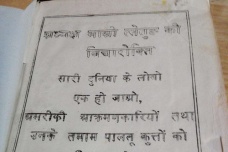 की
विचारोक्ति
सारी दुनिया के लोगो
एक हो जाओ,
अमरीकी आक्रमणकारियों तथा
उनके तमाम पालतू कुत्तों को